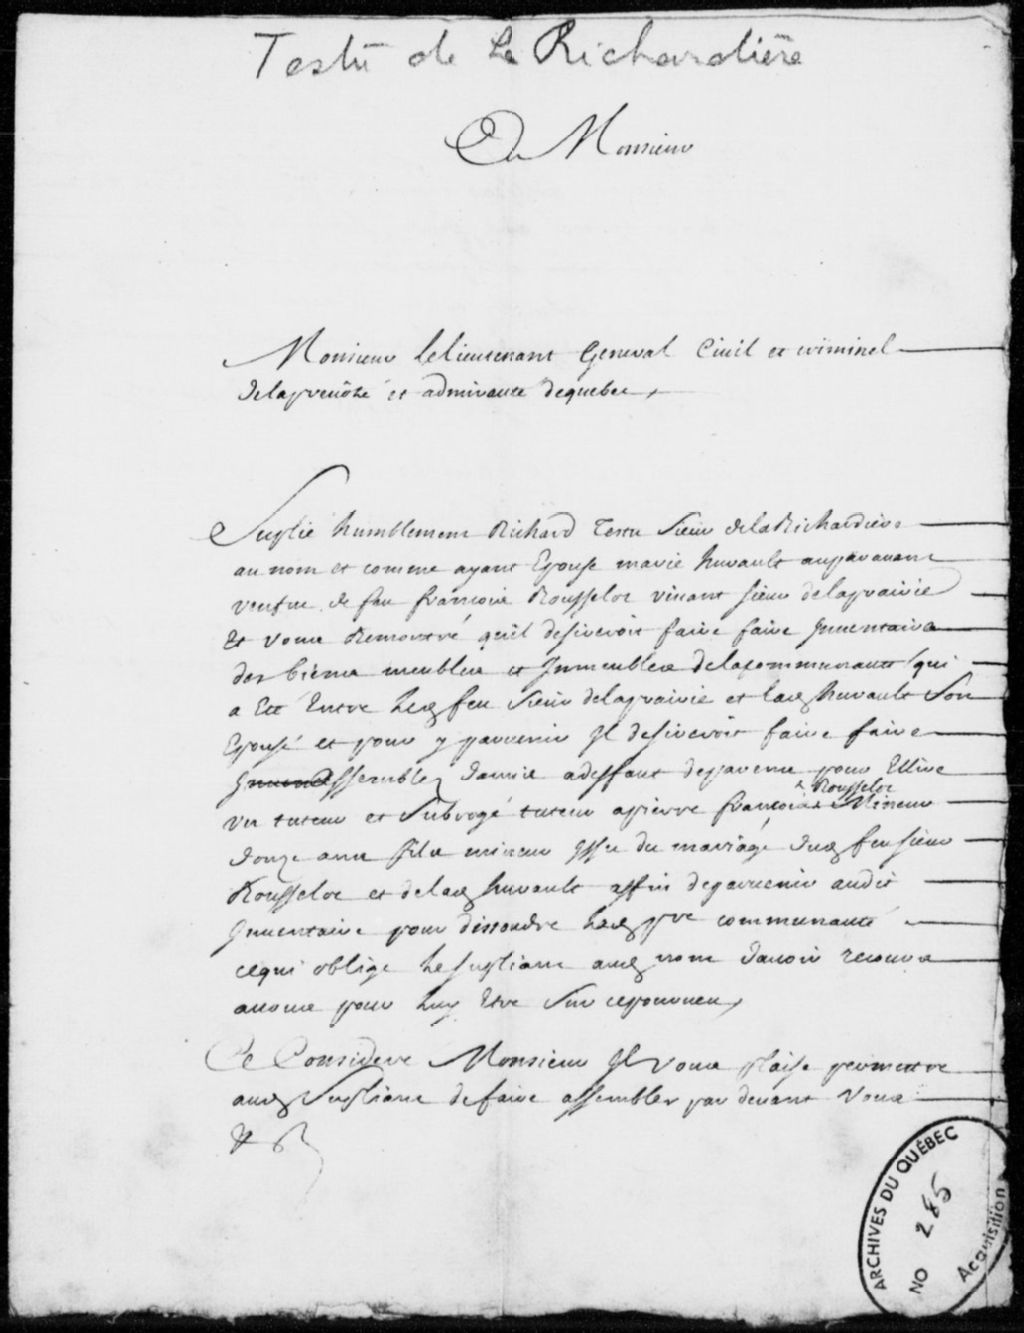 Testu de La Richardière
A Monsieur
Monsieur Le lieutenant General Civil et criminel
de la prevoté et admirauté de quebec,
Suplie humblement Richard Testu Sieur de la Richardiere
au nom et comme ayant Epousé marie hurault auparavant
veufue de feu francois Rousselot vivant sieur de la prairie
Et vous Remontre quil desireroit faire faire Inuentaire
des biens meubles et Immeubles de la communauté qui
a Eté Entre led feu Sieur de la prairie et lad hurault Son
Epouse et pour y parvenir Il desireroit faire faire
assemblé damis a deffaut de parens pour Elire
un tuteur et Subrogé tuteur a pierre francois Rousselot Mineur
donze ans fils mineur Issu du mariage dud feu sieur
Rousselot et de lad hurault affin de parvenir audit
Inuentaire pour dissoudre lad pre communauté
ce qui oblige le supliant aud nom davoir recours
a vous pour luy Etre Sur ce pourveu,
Ce Consideré Monsieur Il vous plaise permettre
aud Supliant de faire assembler par devant Vous
ARCHIVES DU QUÉBEC
NO 285
Acquisition